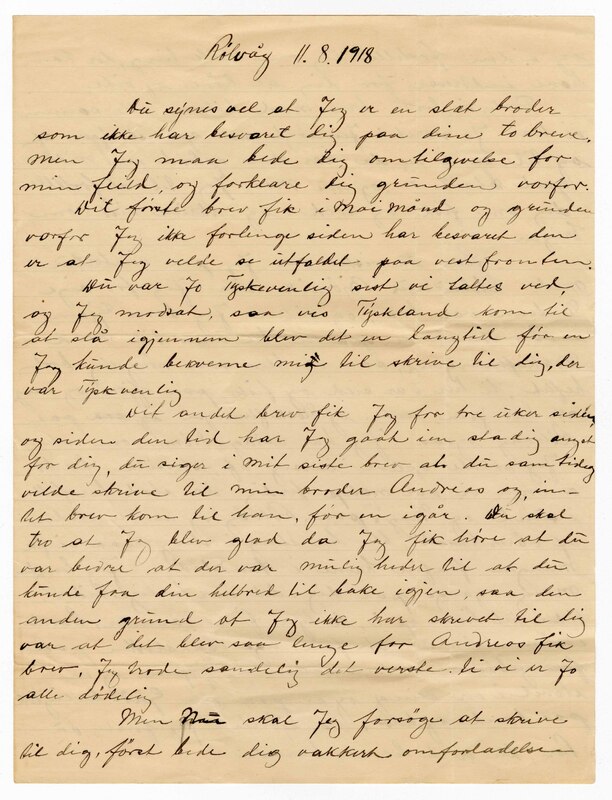 Rølvåg 11.8.1918
Du synes vel at Jeg er en slæt broder
som ikke har besvaret dig paa dine to breve,
men Jeg maa bede dig om tilgivelse for
min feild, og forklare dig grunden vorfor.
Dit første brev fik i Mai Månd og grunden
vorfor Jeg ikke forlenge siden har besvaret den
er at Jeg velde se utfaldet paa vestfronten.
Du var Jo Tyskevenlig sist vi taltes ved,
og Jeg modsat, saa vis Tyskland kom til
at slå igjennem blev det en langtid før en
Jeg kunde bekveme mig til skrive til dig, der
var Tyskvenlig
Dit andet brev fik Jeg for tre uker siden
og siden den tid har Jeg gaat i en stadig angst
for dig, du siger i mit siste brev at du samtideg
vilde skrive til min broder Andreas og, in-
tet brev kom til han, før en igår. Du skal
tro at Jeg blev glad da Jeg fik høre at du
var bedre at der var muligheder til at du
kunde faa din helbred tilbake igjen, saa den
anden grund at Jeg ikke har skrevet til dig
var at det blev saa lenge før Andreas fik
brev, Jeg trode sandelig det verste. ti vi er Jo
alle dødelig
Men Nu skal Jeg forsøge at skrive
til dig, først bede dig vakkert om forladelse